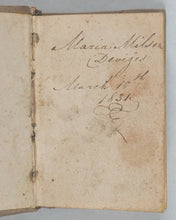 Maria Milson
Devizes
March 10th
1831